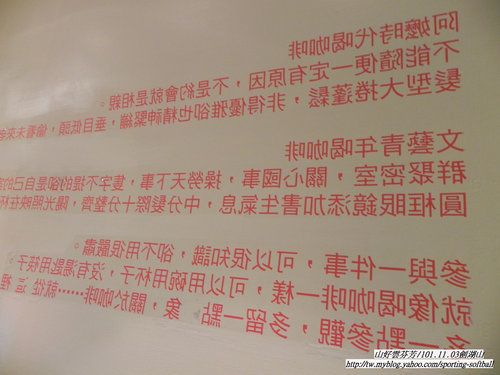 阿嬤時代喝咖啡
不能隨便一定有原因，不是約會就是相親。
髮型大捲蓬鬆，非得優雅卻也精神緊繃，垂目低頭，偷看未來
文藝青年喝咖啡
群聚密室，關心國事，操勞天下事，隻字不提的卻是自己的
圓框眼鏡添加書生氣息，中分髮際十分整齊，陽光照映在杯
參與一件事，可以很知識，卻不用很嚴肅。
就像喝咖啡一樣，可以用碗用杯子，沒有湯匙用筷子。
多一點參觀，多留一點 象，關於咖啡……就從 這 裡
山好雲芬芳/101.11.03劍湖山
http://tw.myblog.yahoo.com/sporting-softball